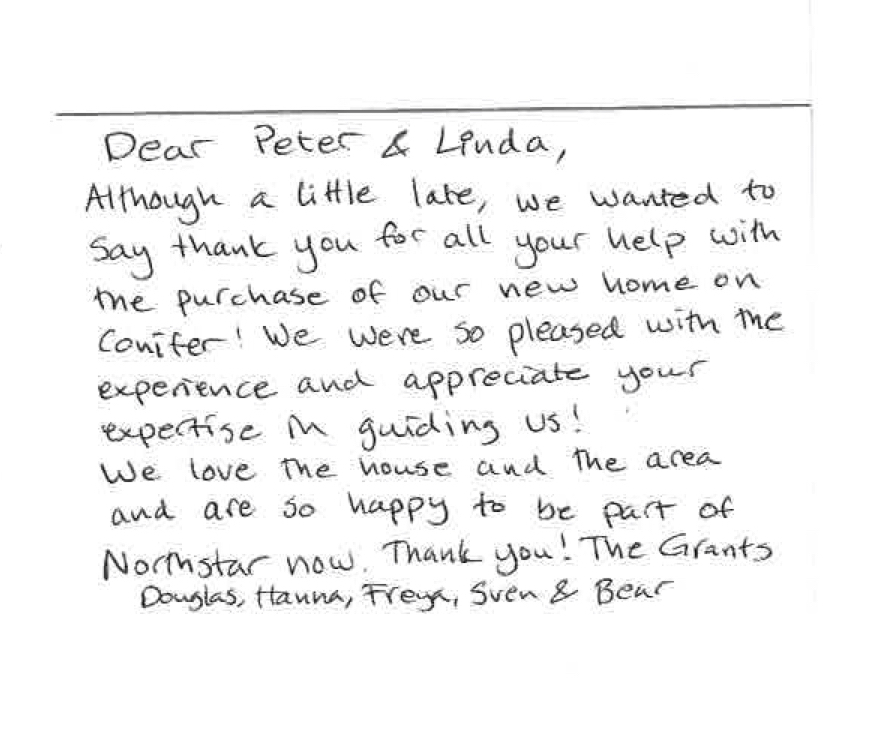 Dear Peter & Linda,
Although a little late, we wanted to
say thank you for all your help with
the purchase of our new home on
Conifer! We were so pleased with the
experience and appreciate your
expertise in guiding us!
We love the house and the area
and are so happy to be part of
Northstar now. Thank you! The Grants
Douglas, Hanna, Freya, Sven & Bear